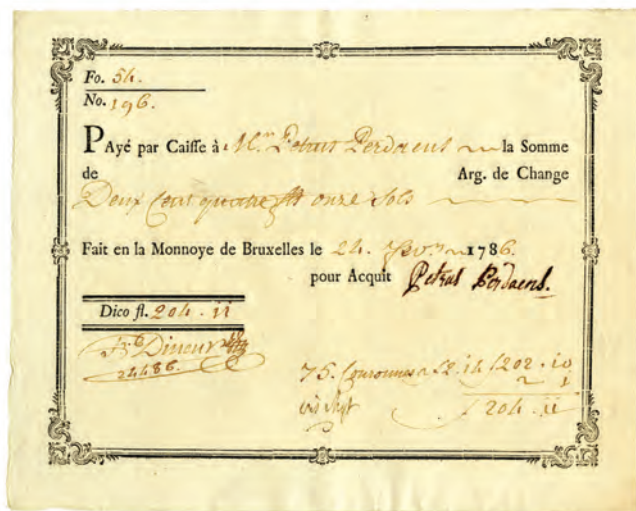 Fo. 54.
No. 196.
Payé par Caisse à Mr. Petrus Perdaens la Somme
de Arg. de Change
Deux Cent quatre fl. onze Sols
Fait en la Monnoye de Bruxelles le 24. 1786.
pour Acquit Petrus Perdaens.
Dico fl. 204 . 11
Dineur
24486.
75. Couronnes a f2. 14 f202 . 10
2 1
f 204 . 11